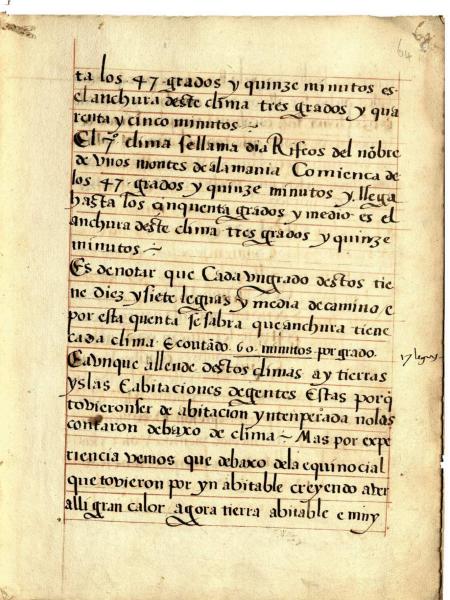 64
64
ta los 47 grados y quinze minutos es
el anchura deste clima tres grados y qua
renta y cinco minutos
El 7º clima se llama dia Rifeos del nõbre
de vnos montes de alamania Comienca de
los 47 grados y quinze minutos y llega
hasta los cinquenta grados y medio es el
anchura deste clima tres grados y quinze
minutos
Es de notar que Cada vn grado destos tie
ne diez y siete leguas y media de camino e
por esta quenta se sabra que anchura tiene
cada clima Econtãdo 60 minutos por grado
17 leguas
E aunque allende destos climas ay tierras
yslas E abitaciones de gentes Estas porq̃
tovieron ser de abitacion yntenperada no las
contaron debaxo de clima Mas por expe
riencia vemos que debaxo de la equinocial
que tovieron por yn abitable creyendo aver
alli gran calor agora tierra abitable e muy